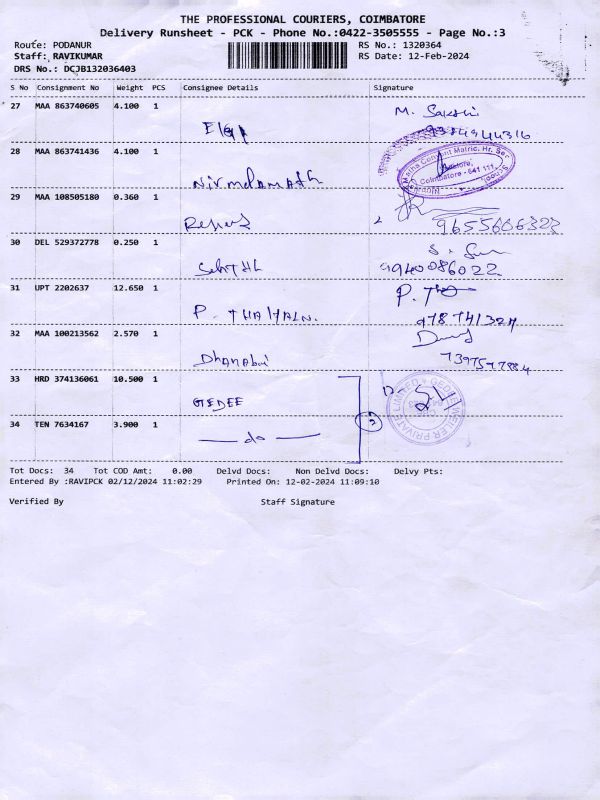 THE PROFESSIONAL COURIERS, COIMBATORE
Delivery Runsheet - PCK - Phone No.:0422-3505555 - Page No.:3
Route: PODANUR RS No.: 1320364
Staff: RAVIKUMAR RS Date: 12-Feb-2024
DRS No.: DCJB132036403
S No Consignment No Weight PCS Consignee Details Signature
27 MAA 863740605 4.100 1 M. Sakshi
28 MAA 863741436 4.100 1
Nirmalamath
Coimbatore - 641 111
29 MAA 108505180 0.360 1
9655606322
30 DEL 529372778 0.250 1
9940086022
31 UPT 2202637 12.650 1
P.
32 MAA 100213562 2.570 1
Dhanabal
33 HRD 374136061 10.500 1
GEDEE
GEDEE WEILER PRIVATE LIMITED
34 TEN 7634167 3.900 1
do
Tot Docs: 34 Tot COD Amt: 0.00 Delvd Docs: Non Delvd Docs: Delvy Pts:
Entered By :RAVIPCK 02/12/2024 11:02:29 Printed On: 12-02-2024 11:09:10
Verified By Staff Signature